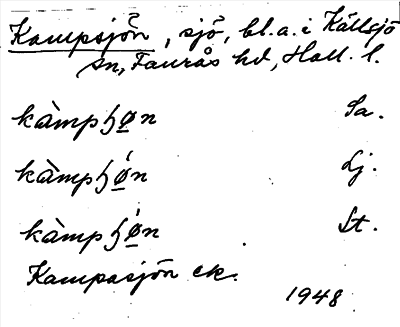 Kampsjön, sjö, bl.a. i Källsjö
sn, Faurås hd, Hall. l.
kàmpꞕø̲n Sa.
kàmpꞕǿ̲n Lj.
kàmpꞕǿ̲n St.
Kampasjön ek.
1948